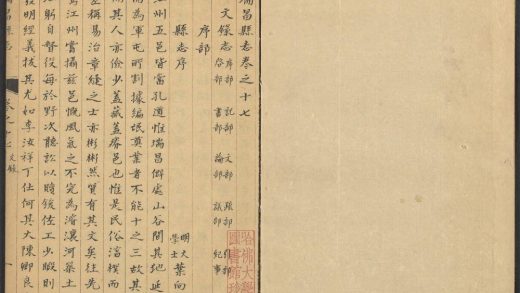 瑞昌縣志卷之十七
文錄志 序部 記部 文部 疏部
啓部 書部 論部 議部 紀事
序部
縣志序
明大學士葉向
江州五邑皆當孔道惟瑞昌僻處山谷間其地延
為軍屯所割據編氓莫業者不能十之三故其
其人亦儉少蓋藏蕃邑也惟是民俗湻樸而
稱易治章縫之士亦彬彬然質有其文矣往先
江州嘗攝茲邑慨風氣之不完為濬瀼河築土
躬自督役每於野次聽訟以贖鍰佐工少暇則
發明經義拔其尤如李汝祥丁仕何其大陳卿良
哈佛大學
圖書館珍